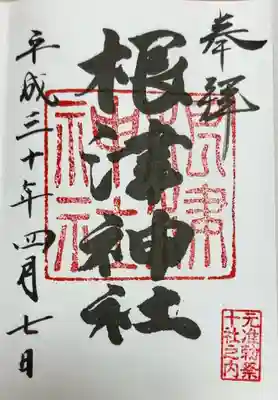 奉拜
根津神社
根津神社
平成三十年四月七日
元准勅祭
十社之内